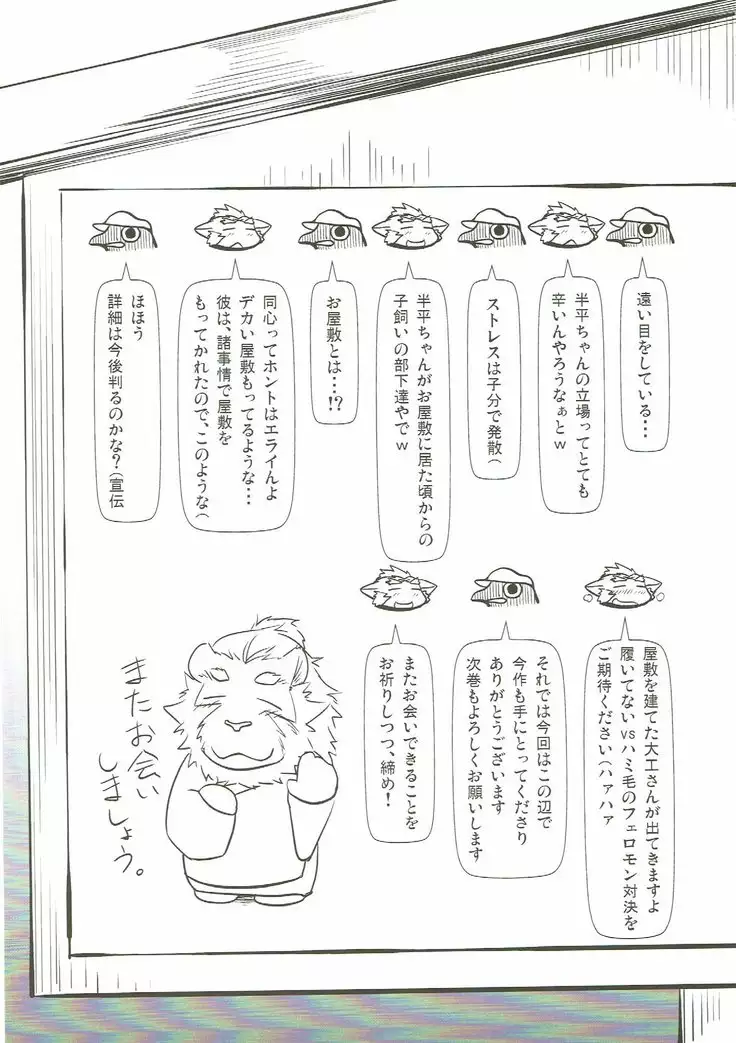 遠い目をしている…
半平ちゃんの立場ってとても
辛いんやろうなぁとw
ストレスは子分で発散(
半平ちゃんがお屋敷に居た頃からの
子飼いの部下達やでw
お屋敷とは…!?
同心ってホントはエライんよ
デカい屋敷もってるような…
彼は、諸事情で屋敷を
もってかれたので、このような(
ほほう
詳細は今後判るのかな?(宣伝
屋敷を建てた大工さんが出てきますよ
履いてないvsハミ毛のフェロモン対決を
ご期待ください(ハァハァ
それでは今回はこの辺で
今作も手にとってくださり
ありがとうございます
次巻もよろしくお願いします
またお会いできることを
お祈りしつつ、締め!
またお会い
しましょう。